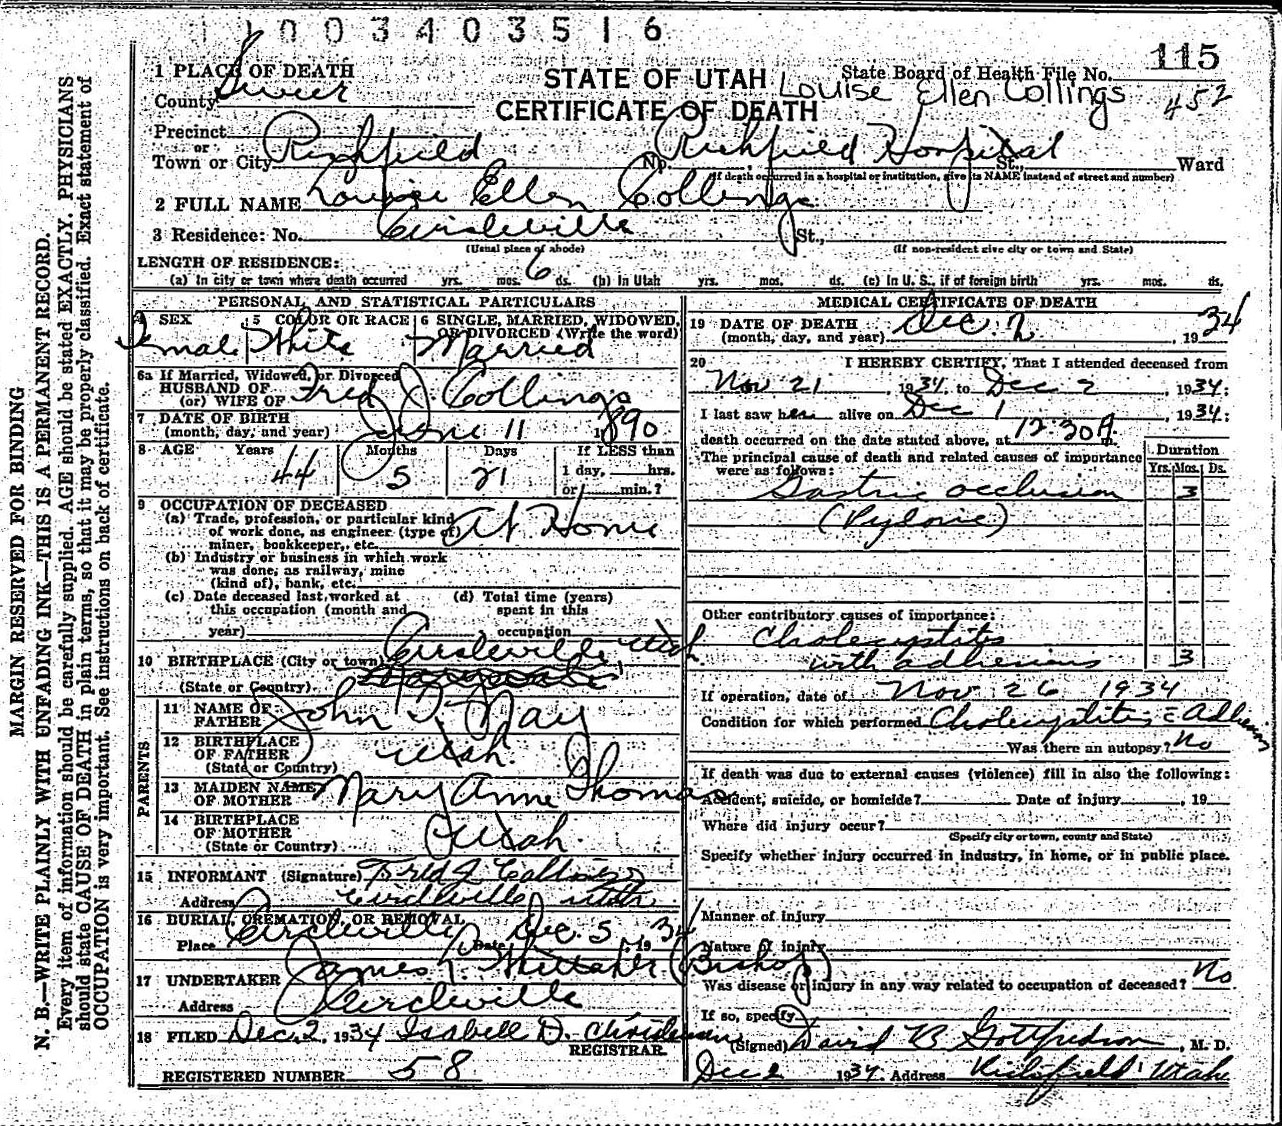 1003403516
115
1 PLACE OF DEATH
STATE OF UTAH
State Board of Health File No.
County Sevier
CERTIFICATE OF DEATH
Louise Ellen Collings
452
Precinct
or
Town or City Richfield No. Richfield Hospital St., Ward
(If death occurred in a hospital or institution, give its NAME instead of street and number)
2 FULL NAME Louise Ellen Collings
3 Residence: No. Circleville St.,
(Usual place of abode) (If non-resident give city or town and State)
LENGTH OF RESIDENCE:
(a) In city or town where death occurred yrs. mos. 6 ds. (b) In Utah yrs. mos. ds. (c) In U. S., if of foreign birth yrs. mos. ds.
PERSONAL AND STATISTICAL PARTICULARS
4 SEX Female
5 COLOR OR RACE White
6 SINGLE, MARRIED, WIDOWED, OR DIVORCED (Write the word) Married
6a If Married, Widowed, or Divorced
HUSBAND OF
(or) WIFE OF Fred J. Collings
7 DATE OF BIRTH
(month, day, and year) June 11 1890
8 AGE Years 44 Months 5 Days 21 If LESS than
1 day, hrs.
or min.?
9 OCCUPATION OF DECEASED
(a) Trade, profession, or particular kind
of work done, as engineer (type of)
miner, bookkeeper, etc. At Home
(b) Industry or business in which work
was done, as railway, mine
(kind of), bank, etc.
(c) Date deceased last worked at
this occupation (month and
year)
(d) Total time (years)
spent in this
occupation
10 BIRTHPLACE (City or town) Circleville Utah
(State or Country)
PARENTS
11 NAME OF
FATHER John T. Nay
12 BIRTHPLACE
OF FATHER
(State or Country) Utah.
13 MAIDEN NAME
OF MOTHER Mary Anne Thomas
14 BIRTHPLACE
OF MOTHER
(State or Country) Utah.
15 INFORMANT (Signature) Fred J Collings
Address Circleville Utah
16 BURIAL, CREMATION, OR REMOVAL
Place Circleville Date Dec. 5, 1934
17 UNDERTAKER James T. Whittaker (Bishop)
Address Circleville
18 FILED Dec. 2, 1934 Isabell D. Christensen
REGISTRAR
REGISTERED NUMBER 58
MEDICAL CERTIFICATE OF DEATH
19 DATE OF DEATH
(month, day, and year) Dec. 2, 1934
20 I HEREBY CERTIFY, That I attended deceased from
Nov 21, 1934, to Dec 2, 1934:
I last saw her alive on Dec 1 1934:
death occurred on the date stated above, at 12:30 A m.
The principal cause of death and related causes of importance
were as follows:
Duration
Yrs. Mos. Ds.
Gastric occlusion 3
(Pyloric)
Other contributory causes of importance:
Cholecystitis
with adhesions 3
If operation, date of Nov 26 1934
Condition for which performed Cholecystitis c̄ Adhesions
Was there an autopsy? No
If death was due to external causes (violence) fill in also the following:
Accident, suicide, or homicide? Date of injury , 19
Where did injury occur?
(Specify city or town, county and State)
Specify whether injury occurred in industry, in home, or in public place.
Manner of injury
Nature of injury
Was disease or injury in any way related to occupation of deceased? No
If so, specify
(Signed) David R Gottfredson, M. D.
Dec 2 1934. Address Richfield Utah
MARGIN RESERVED FOR BINDING
N. B.—WRITE PLAINLY WITH UNFADING INK—THIS IS A PERMANENT RECORD.
Every item of information should be carefully supplied. AGE should be stated EXACTLY. PHYSICIANS
should state CAUSE OF DEATH in plain terms, so that it may be properly classified. Exact statement of
OCCUPATION is very important. See instructions on back of certificate.